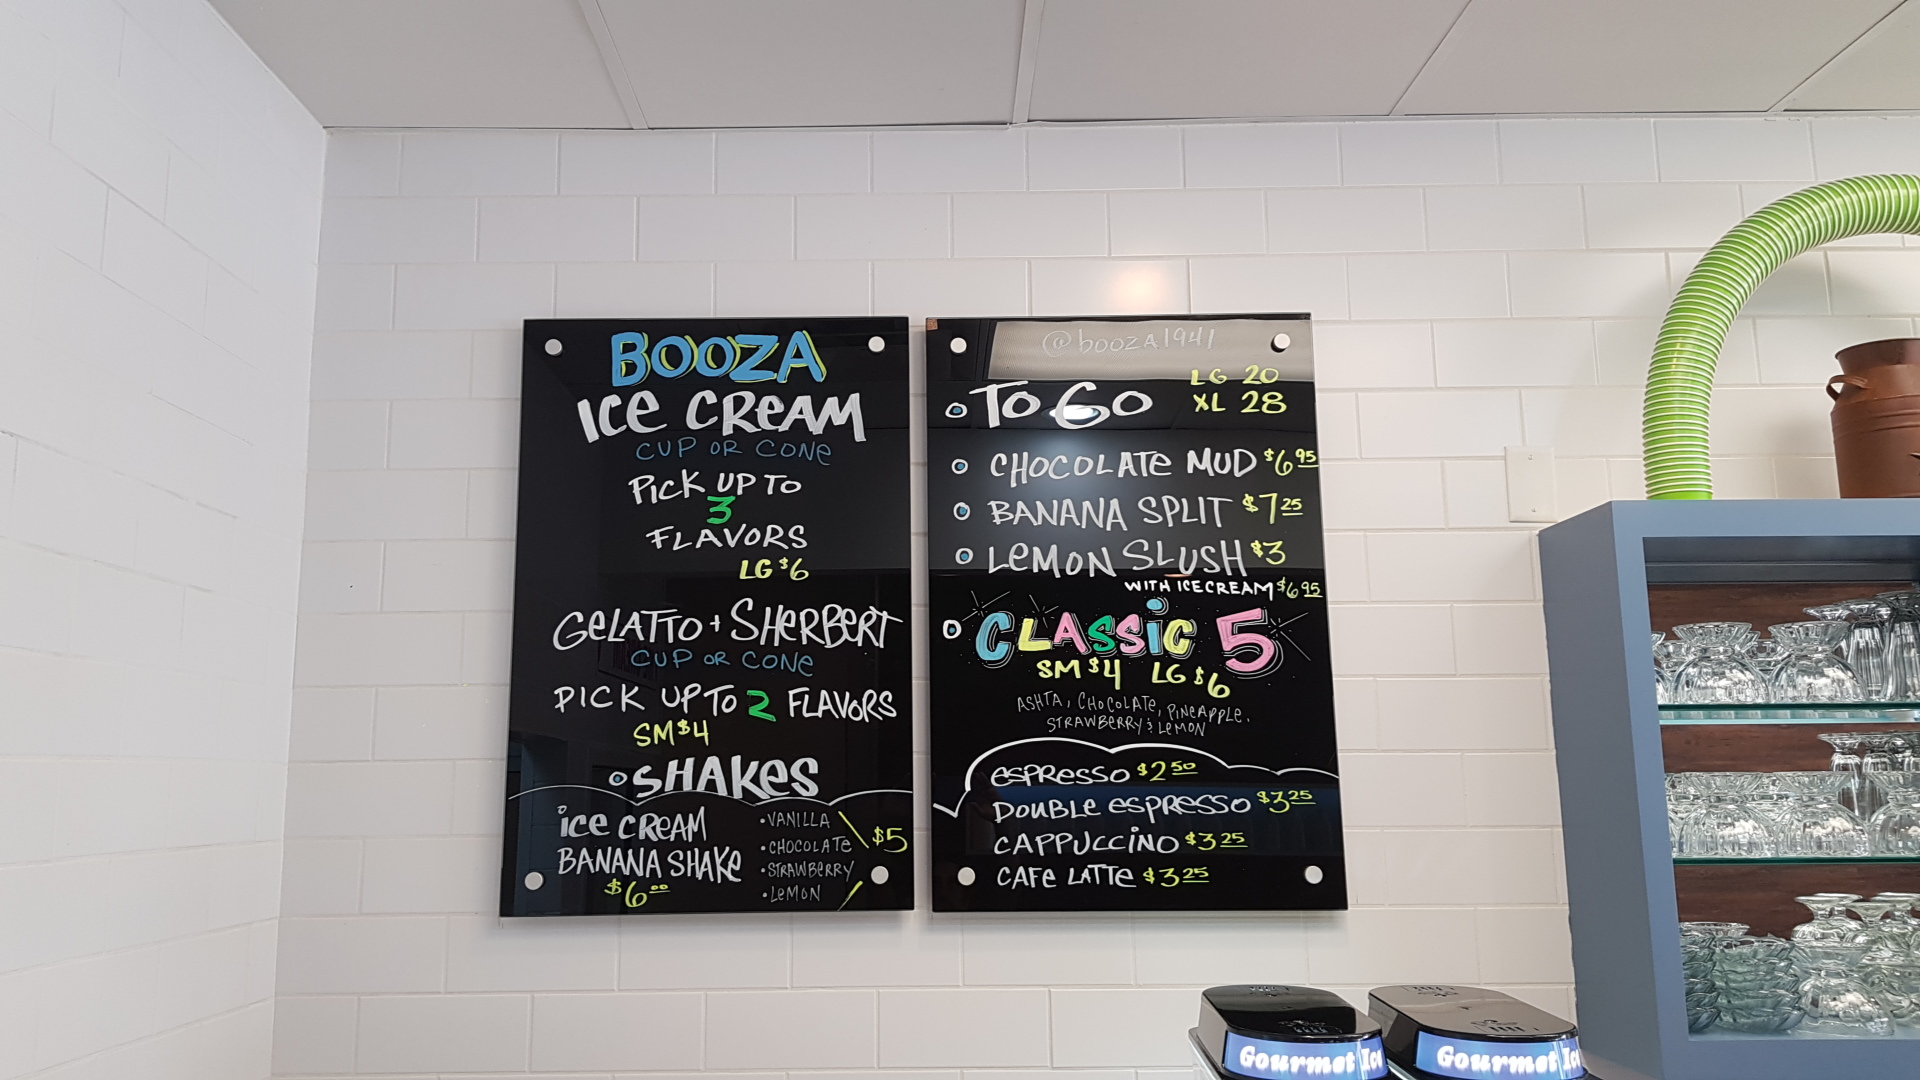 BOOZA
ICE CREAM
CUP OR CONE
PICK UP TO
3
FLAVORS
LG $6
GELATTO + SHERBERT
CUP OR CONE
PICK UP TO 2 FLAVORS
SM $4
SHAKES
ICE CREAM
BANANA SHAKE
$6.00
• VANILLA
• CHOCOLATE
• STRAWBERRY
• LEMON
$5
@booza1941
TO GO
LG 20
XL 28
CHOCOLATE MUD $6 95
BANANA SPLIT $7 25
LEMON SLUSH $3
WITH ICE CREAM $6 95
CLASSIC 5
SM $4 LG $6
ASHTA, CHOCOLATE, PINEAPPLE,
STRAWBERRY & LEMON
ESPRESSO $2 50
DOUBLE ESPRESSO $3 25
CAPPUCCINO $3 25
CAFE LATTE $3 25
Gourmet Ice
Gourmet Ice